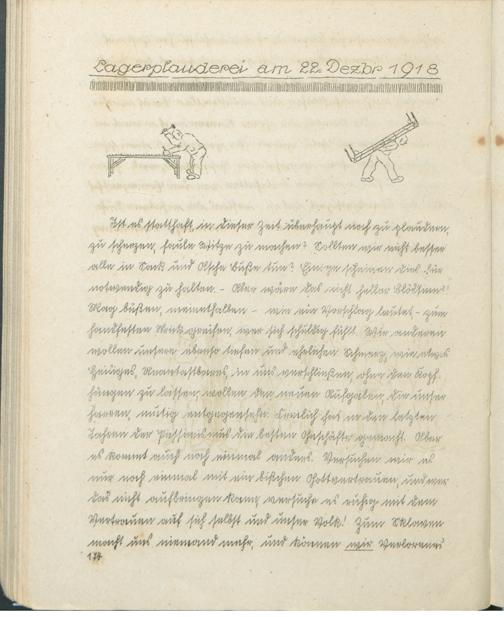 Lagerplauderei am 22. Dezbr 1918
Ist es statthaft, in dieser Zeit überhaupt noch zu plaudern,
zu scherzen, faule Witze zu machen? Sollten wir nicht besser
alle in Sack und Asche Buße tun? Einige scheinen das für
notwendig zu halten. – Aber wäre das nicht heller Blödsinn?
Mag büßen, meinethalben – wie ein Vorschlag lautet – zum
handfesten Werk greifen, wer sich schuldig fühlt. Wir anderen
wollen unsern ebenso tiefen und ehrlichen Schmerz, wie etwas
Heiliges, Unantastbares, in uns verschließen, ohne den Kopf
hängen zu lassen, wollen den neuen Aufgaben, die unser
harren, mutig entgegensehn. Freilich hat in den letzten
Jahren der Pessimismus die besten Geschäfte gemacht. Aber
es kommt auch noch einmal anders. Versuchen wir es
nur noch einmal mit ein bißchen Gottvertrauen, und wer
das nicht aufbringen kann, versuche es ruhig mit dem
Vertrauen auf sich selbst und unser Volk! Zum Sklaven
macht uns niemand mehr, und können wir Verlorenes
174